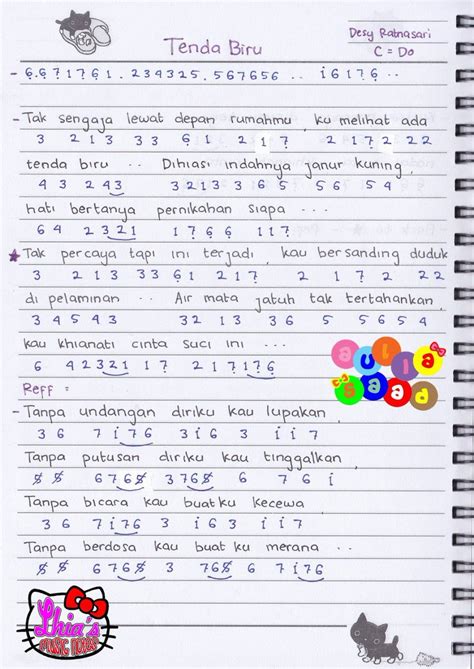 Tenda Biru
Desy Ratnasari
C = Do
- 6̣.6̣7̣17̣6̣1 . 234325 . 567656 .. i̇6i̇76 ..
- Tak sengaja lewat depan rumahmu, ku melihat ada
3 2 1 3 3 3 6̣ 1 2 1 7̣ 2 1 7̣ 2 2 2
tenda biru .. Dihiasi indahnya janur kuning,
4 2 4 3 3 2 1 3 3 6 5 5 6 5 4
hati bertanya pernikahan siapa ...
6 4 2 3 2 1 1 7̣ 6̣ 6̣ 1 1 7̣
★ Tak percaya tapi ini terjadi, kau bersanding duduk
3 2 1 3 3 3 6̣ 1 2 1 7̣ 2 1 7̣ 2 2 2
di pelaminan .. Air mata jatuh tak tertahankan,
3 4 5 4 3 3 2 1 3 3 6 5 5 6 5 4
kau khianati cinta suci ini ...
6 4 2 3 2 1 1 7̣ 2 1 7̣ 1 7̣ 6̣
Reff =
- Tanpa undangan diriku kau lupakan,
3 6 7 i̇ 7 6 3 i̇ 6 3 i̇ i̇ 7
Tanpa putusan diriku kau tinggalkan,
$ $ 6 7 6 $ 3 7 6 $ 6 7 6 i̇
Tanpa bicara kau buatku kecewa,
3 6 7 i̇ 7 6 3 i̇ 6 3 i̇ i̇ 7
Tanpa berdosa kau buat ku merana ..
$ $ 6 7 6 $ 3 7 6 $ 6 7 i̇ 7 6
Lhia's